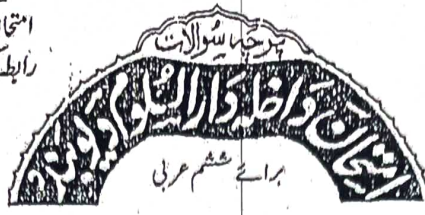 امتحا
رابطہ
پرچہ سوالات
امتحان داخلہ دارالعلوم دیوبند
برائے ششم عربی